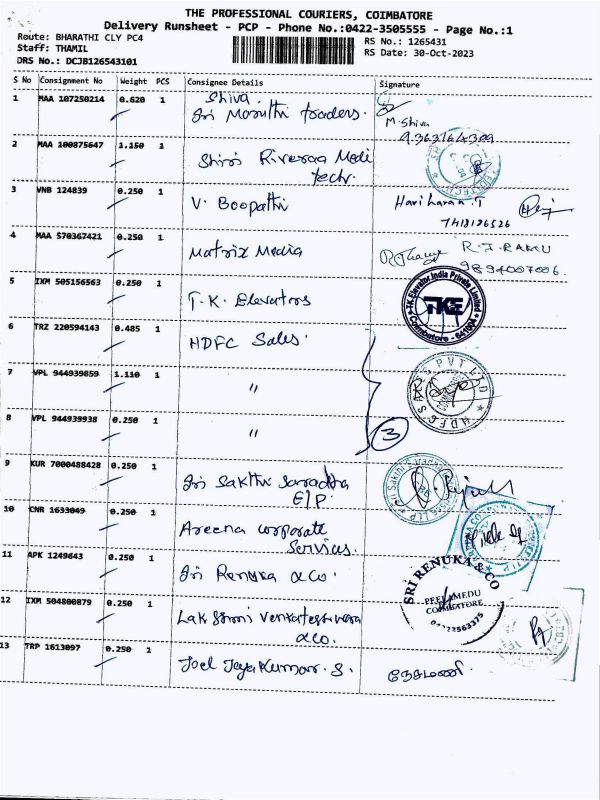 THE PROFESSIONAL COURIERS, COIMBATORE
Delivery Runsheet - PCP - Phone No.:0422-3505555 - Page No.:1
Route: BHARATHI CLY PC4
RS No.: 1265431
Staff: THAMIL
RS Date: 30-Oct-2023
DRS No.: DCJB126543101
S No Consignment No Weight PCS Consignee Details Signature
1 MAA 107250214 0.620 1 Shiva.
Sri Maruthi traders.
M. Shiva
9363164309
2 MAA 100875647 1.150 1 Shiri Riveraa Medi
tech.
3 VNB 124839 0.250 1 V. Boopathi Hariharan.T
7418126526
4 MAA 570367421 0.250 1 Matrix Media R.J. RAMU
9894007006.
5 IXM 505156563 0.250 1 T.K. Elevators
TK Elevator India Private Limited
TKE
Coimbatore - 641004
6 TRZ 220594143 0.485 1 HDFC Sales.
7 VPL 944939859 1.110 1 "
HDFC SALES PVT LTD
8 VPL 944939938 0.250 1 "
3
9 KUR 7000488428 0.250 1 Sri Sakthi Saradha
E/P.
10 CNR 1633049 0.250 1 Areena corporate
Services.
11 APK 1249643 0.250 1 Sri Renuka & Co.
SRI RENUKA & CO
PEELAMEDU
COIMBATORE
12 IXM 504800879 0.250 1 Lakshmi Venkateshwara
& Co.
13 TRP 1613097 0.250 1 Joel Jeyakumar. S. நேசமணி